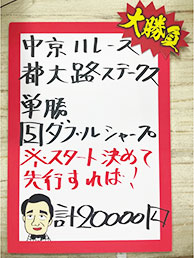 大勝負
中京11レース
都大路ステークス
単勝
5ダブルシャープ
※スタート決めて
先行すれば!
計20000円